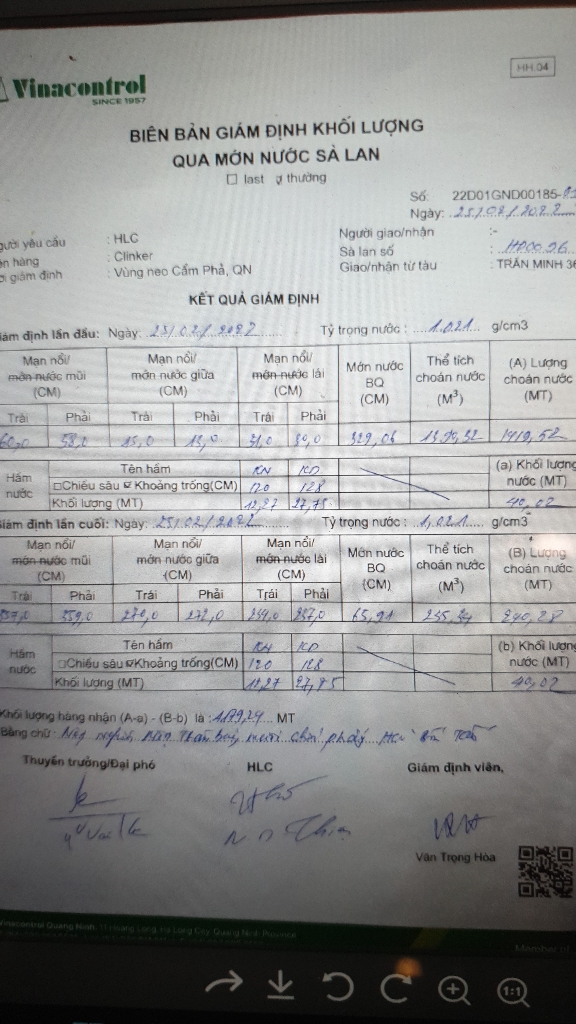 Vinacontrol
SINCE 1957
HH.04
BIÊN BẢN GIÁM ĐỊNH KHỐI LƯỢNG
QUA MỚN NƯỚC SÀ LAN
last thường
Số: 22D01GND00185-
Ngày: 25/02/2022
gười yêu cầu : HLC
ên hàng : Clinker
ơi giám định : Vùng neo Cẩm Phả, QN
Người giao/nhận :-
Sà lan số :
Giao/nhận từ tàu : TRẦN MINH 36
KẾT QUẢ GIÁM ĐỊNH
Giám định lần đầu: Ngày: 25/02/2022 Tỷ trọng nước : 1.021 g/cm3
Mạn nổi/ mớn nước mũi (CM)
Mạn nổi/ mớn nước giữa (CM)
Mạn nổi/ mớn nước lái (CM)
Mớn nước BQ (CM)
Thể tích choán nước (M³)
(A) Lượng choán nước (MT)
Trái Phải Trái Phải Trái Phải
60,0 58,0 15,0 31,0 30,0 329,06 1419,52
Hầm nước
Tên hầm KN KD
Chiều sâu Khoảng trống(CM) 120 128
Khối lượng (MT) 12,27 27,75
(a) Khối lượng nước (MT)
40,02
Giám định lần cuối: Ngày: 25/02/2022 Tỷ trọng nước : 1,021 g/cm3
Mạn nổi/ mớn nước mũi (CM)
Mạn nổi/ mớn nước giữa (CM)
Mạn nổi/ mớn nước lái (CM)
Mớn nước BQ (CM)
Thể tích choán nước (M³)
(B) Lượng choán nước (MT)
Trái Phải Trái Phải Trái Phải
359,0 270,0 272,0 65,91 240,28
Hầm nước
Tên hầm KN KD
Chiều sâu Khoảng trống(CM) 120 128
Khối lượng (MT) 12,27 27,75
(b) Khối lượng nước (MT)
40,02
Khối lượng hàng nhận (A-a) - (B-b) là : 1179,24 MT
Bằng chữ : Một nghìn Một trăm bảy mươi chín phẩy Hai bốn Tấn
Thuyền trưởng/Đại phó
HLC
Giám định viên,
Văn Trọng Hòa
Vinacontrol Quang Ninh, 11 Hoang Long, Ha Long City, Quang Ninh Province
Member of
1:1